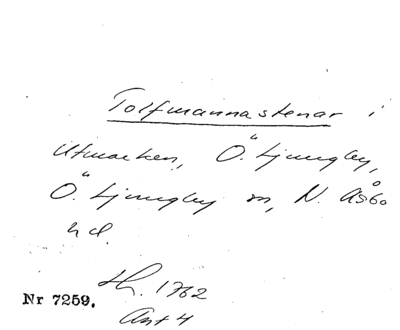 Tolfmannastenar i
Utmarken, Ö. Ljungby,
Ö. Ljungby sn, N. Åsbo
hd.
1762
Nr 7259.